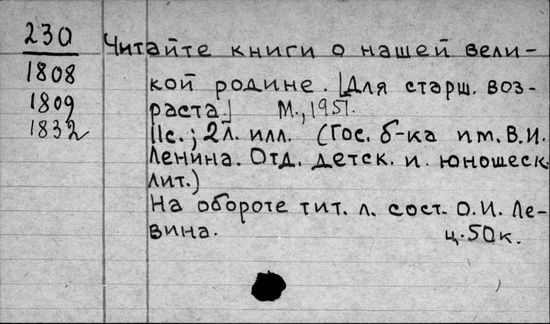 230 Читайте книги о нашей вели-
1808 кой родине. [Для старш. воз-
1809 раста] М., 1951.
1832 11с.; 2л. илл. (Гос. б-ка им. В.И.
Ленина. Отд. детск. и юношеск.
лит.)
На обороте тит. л. сост. О.И. Ле-
вина. ц. 50к.